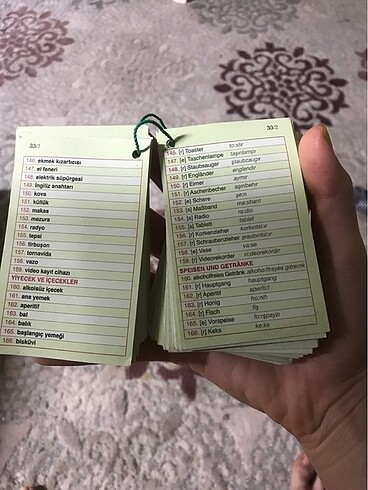 33/1
146. ekmek kızartıcısı
147. el feneri
148. elektrik süpürgesi
149. İngiliz anahtarı
150. kova
151. küllük
152. makas
153. mezura
154. radyo
155. tepsi
156. tirbuşon
157. tornavida
158. vazo
159. video kayıt cihazı
YİYECEK VE İÇECEKLER
160. alkolsüz içecek
161. ana yemek
162. aperitif
163. bal
164. balık
165. başlangıç yemeği
166. bisküvi
33/2
146. [r] Toaster
147. [e] Taschenlampe
148. [r] Staubsauger
149. [r] Engländer
150. [r] Eimer
151. [r] Aschenbecher
152. [e] Schere
153. [s] Maßband
154. [s] Radio
155. [s] Tablett
156. [r] Korkenzieher
157. [r] Schraubenzieher
158. [e] Vase
159. [r] Videorekorder
SPEISEN UND GETRÄNKE
160. alkoholfreies Getränk
161. [r] Hauptgang hauptgang
162. [r] Aperitif
163. [r] Honig
164. [r] Fisch
165. [e] Vorspeise
166. [r] Keks